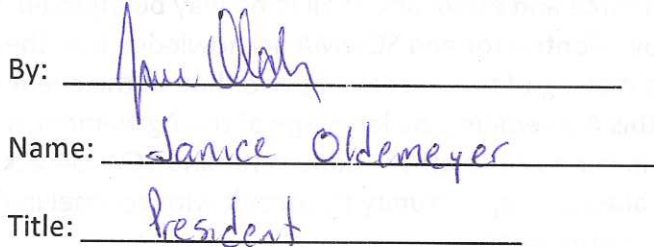 By:
Name: Janice Oldemeyer
Title: President